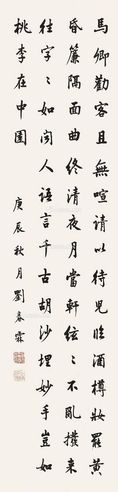 馬卿勸客且無喧請以侍兒臨酒樽妝罷黃
昏簾隔面曲終清夜月當軒絃〻不亂撥來
往字〻如聞人語言千古胡沙埋妙手豈如
桃李在中園
庚辰秋月劉春霖